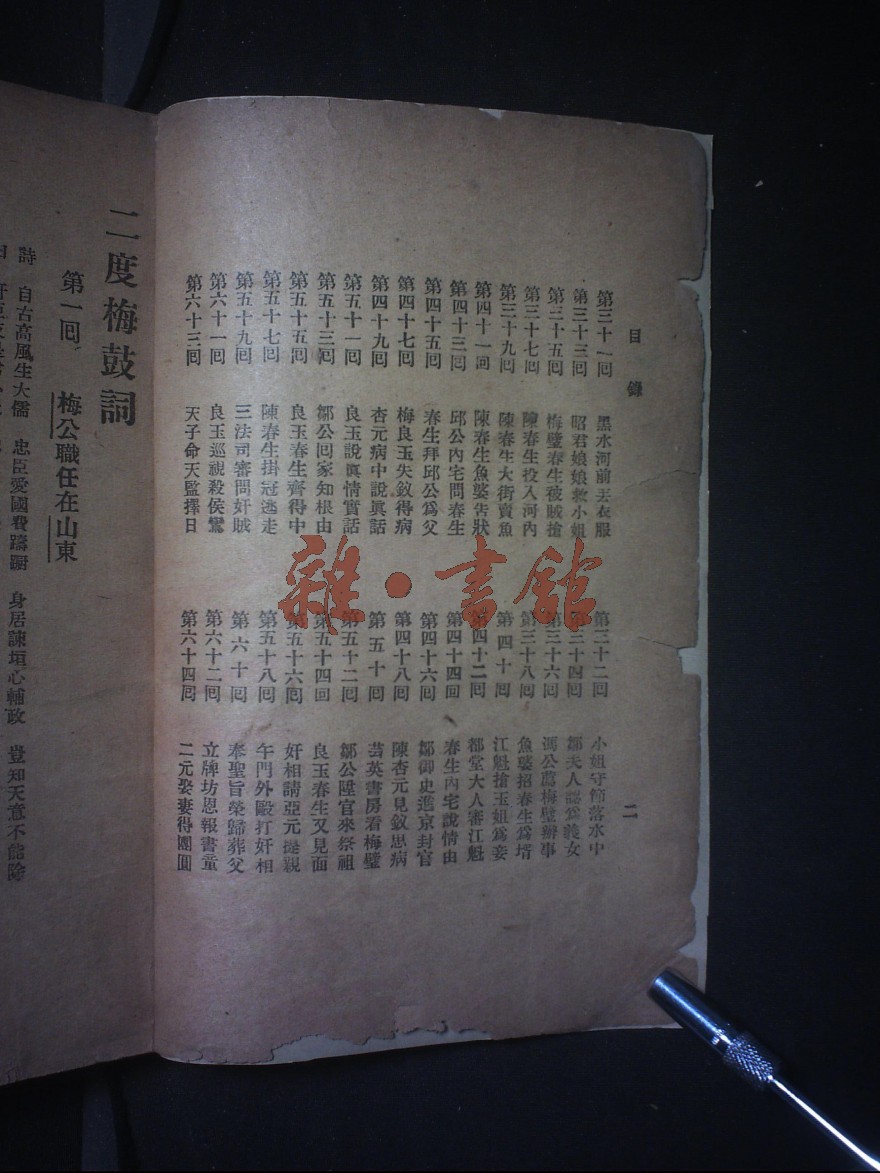 目錄
第三十一回 黑水河前丟衣服
第三十二回 小姐守節落水中
第三十三回 昭君娘娘救小姐
第三十四回 鄒夫人認爲義女
第三十五回 梅璧春生被賊搶
第三十六回 馮公薦梅璧辦事
第三十七回 陳春生投入河內
第三十八回 魚婆招春生爲壻
第三十九回 陳春生大街賣魚
第四十回 江魁搶玉姐爲妾
第四十一回 陳春生魚婆告狀
第四十二回 都堂大人審江魁
第四十三回 邱公內宅問春生
第四十四回 春生內宅說情由
第四十五回 春生拜邱公爲父
第四十六回 鄒御史進京封官
第四十七回 梅良玉失釵得病
第四十八回 陳杏元見釵思病
第四十九回 杏元病中說眞話
第五十回 芸英書房看梅璧
第五十一回 良玉說眞情實話
第五十二回 鄒公陞官來祭祖
第五十三回 鄒公回家知根由
第五十四回 良玉春生又見面
第五十五回 良玉春生齊得中
第五十六回 奸相請亞元提親
第五十七回 陳春生掛冠逃走
第五十八回 午門外毆打奸相
第五十九回 三法司審問奸賊
第六十回 奉聖旨榮歸葬父
第六十一回 良玉巡視殺侯鸞
第六十二回 立牌坊恩報書童
第六十三回 天子命天監擇日
第六十四回 二元娶妻得團圓
二
二度梅鼓詞
第一回 梅公職任在山東
詩 自古高風生大儒 忠臣愛國費躊躕 身居諫垣心輔政 豈知天意不能除
雜·書館